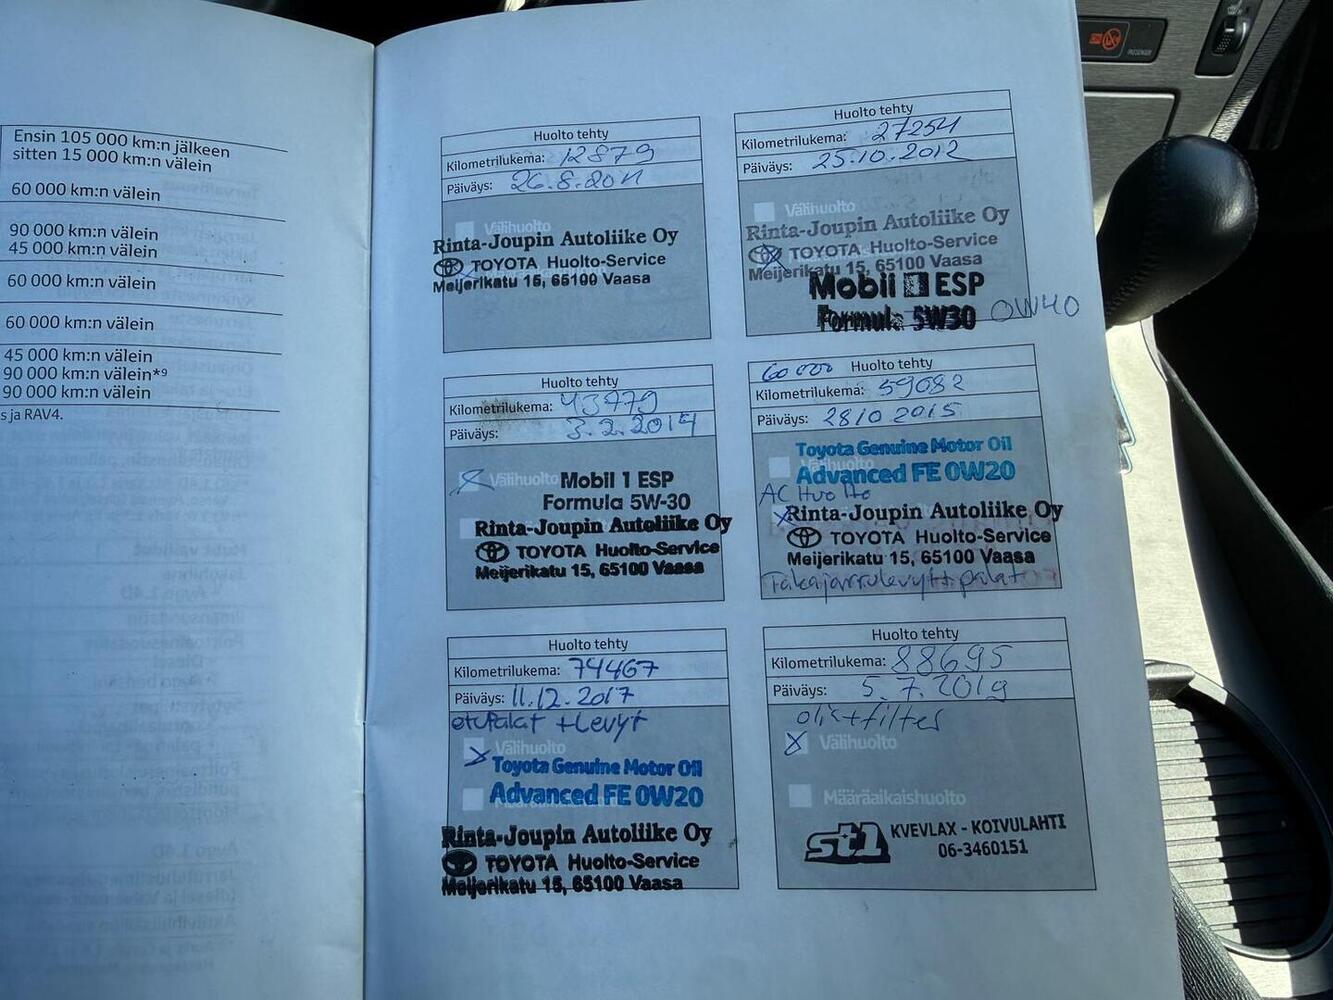 Ensin 105 000 km:n jälkeen
sitten 15 000 km:n välein
60 000 km:n välein
90 000 km:n välein
45 000 km:n välein
60 000 km:n välein
60 000 km:n välein
45 000 km:n välein
90 000 km:n välein*⁹
90 000 km:n välein
s ja RAV4.
Huolto tehty
Kilometrilukema: 12879
Päiväys: 26.8.2011
Välihuolto
Rinta-Joupin Autoliike Oy
TOYOTA Huolto-Service
Meijerikatu 15, 65100 Vaasa
Huolto tehty
Kilometrilukema: 27254
Päiväys: 25.10.2012
Välihuolto
Rinta-Joupin Autoliike Oy
TOYOTA Huolto-Service
Meijerikatu 15, 65100 Vaasa
Mobil 1 ESP
Formula 5W30 0W40
Huolto tehty
Kilometrilukema: 43779
Päiväys: 3.2.2014
Välihuolto
Mobil 1 ESP
Formula 5W-30
Rinta-Joupin Autoliike Oy
TOYOTA Huolto-Service
Meijerikatu 15, 65100 Vaasa
60 000 Huolto tehty
Kilometrilukema: 59082
Päiväys: 28 10 2015
Toyota Genuine Motor Oil
Välihuolto
Advanced FE 0W20
AC Huolto
Rinta-Joupin Autoliike Oy
TOYOTA Huolto-Service
Meijerikatu 15, 65100 Vaasa
Takajarrulevytt palat
Huolto tehty
Kilometrilukema: 74467
Päiväys: 11.12.2017
etupalat + Levyt
Välihuolto
Toyota Genuine Motor Oil
Advanced FE 0W20
Rinta-Joupin Autoliike Oy
TOYOTA Huolto-Service
Meijerikatu 15, 65100 Vaasa
Huolto tehty
Kilometrilukema: 88695
Päiväys: 5.7.2019
Välihuolto
Määräaikaishuolto
st1 KVEVLAX - KOIVULAHTI
06-3460151
PASSENGER